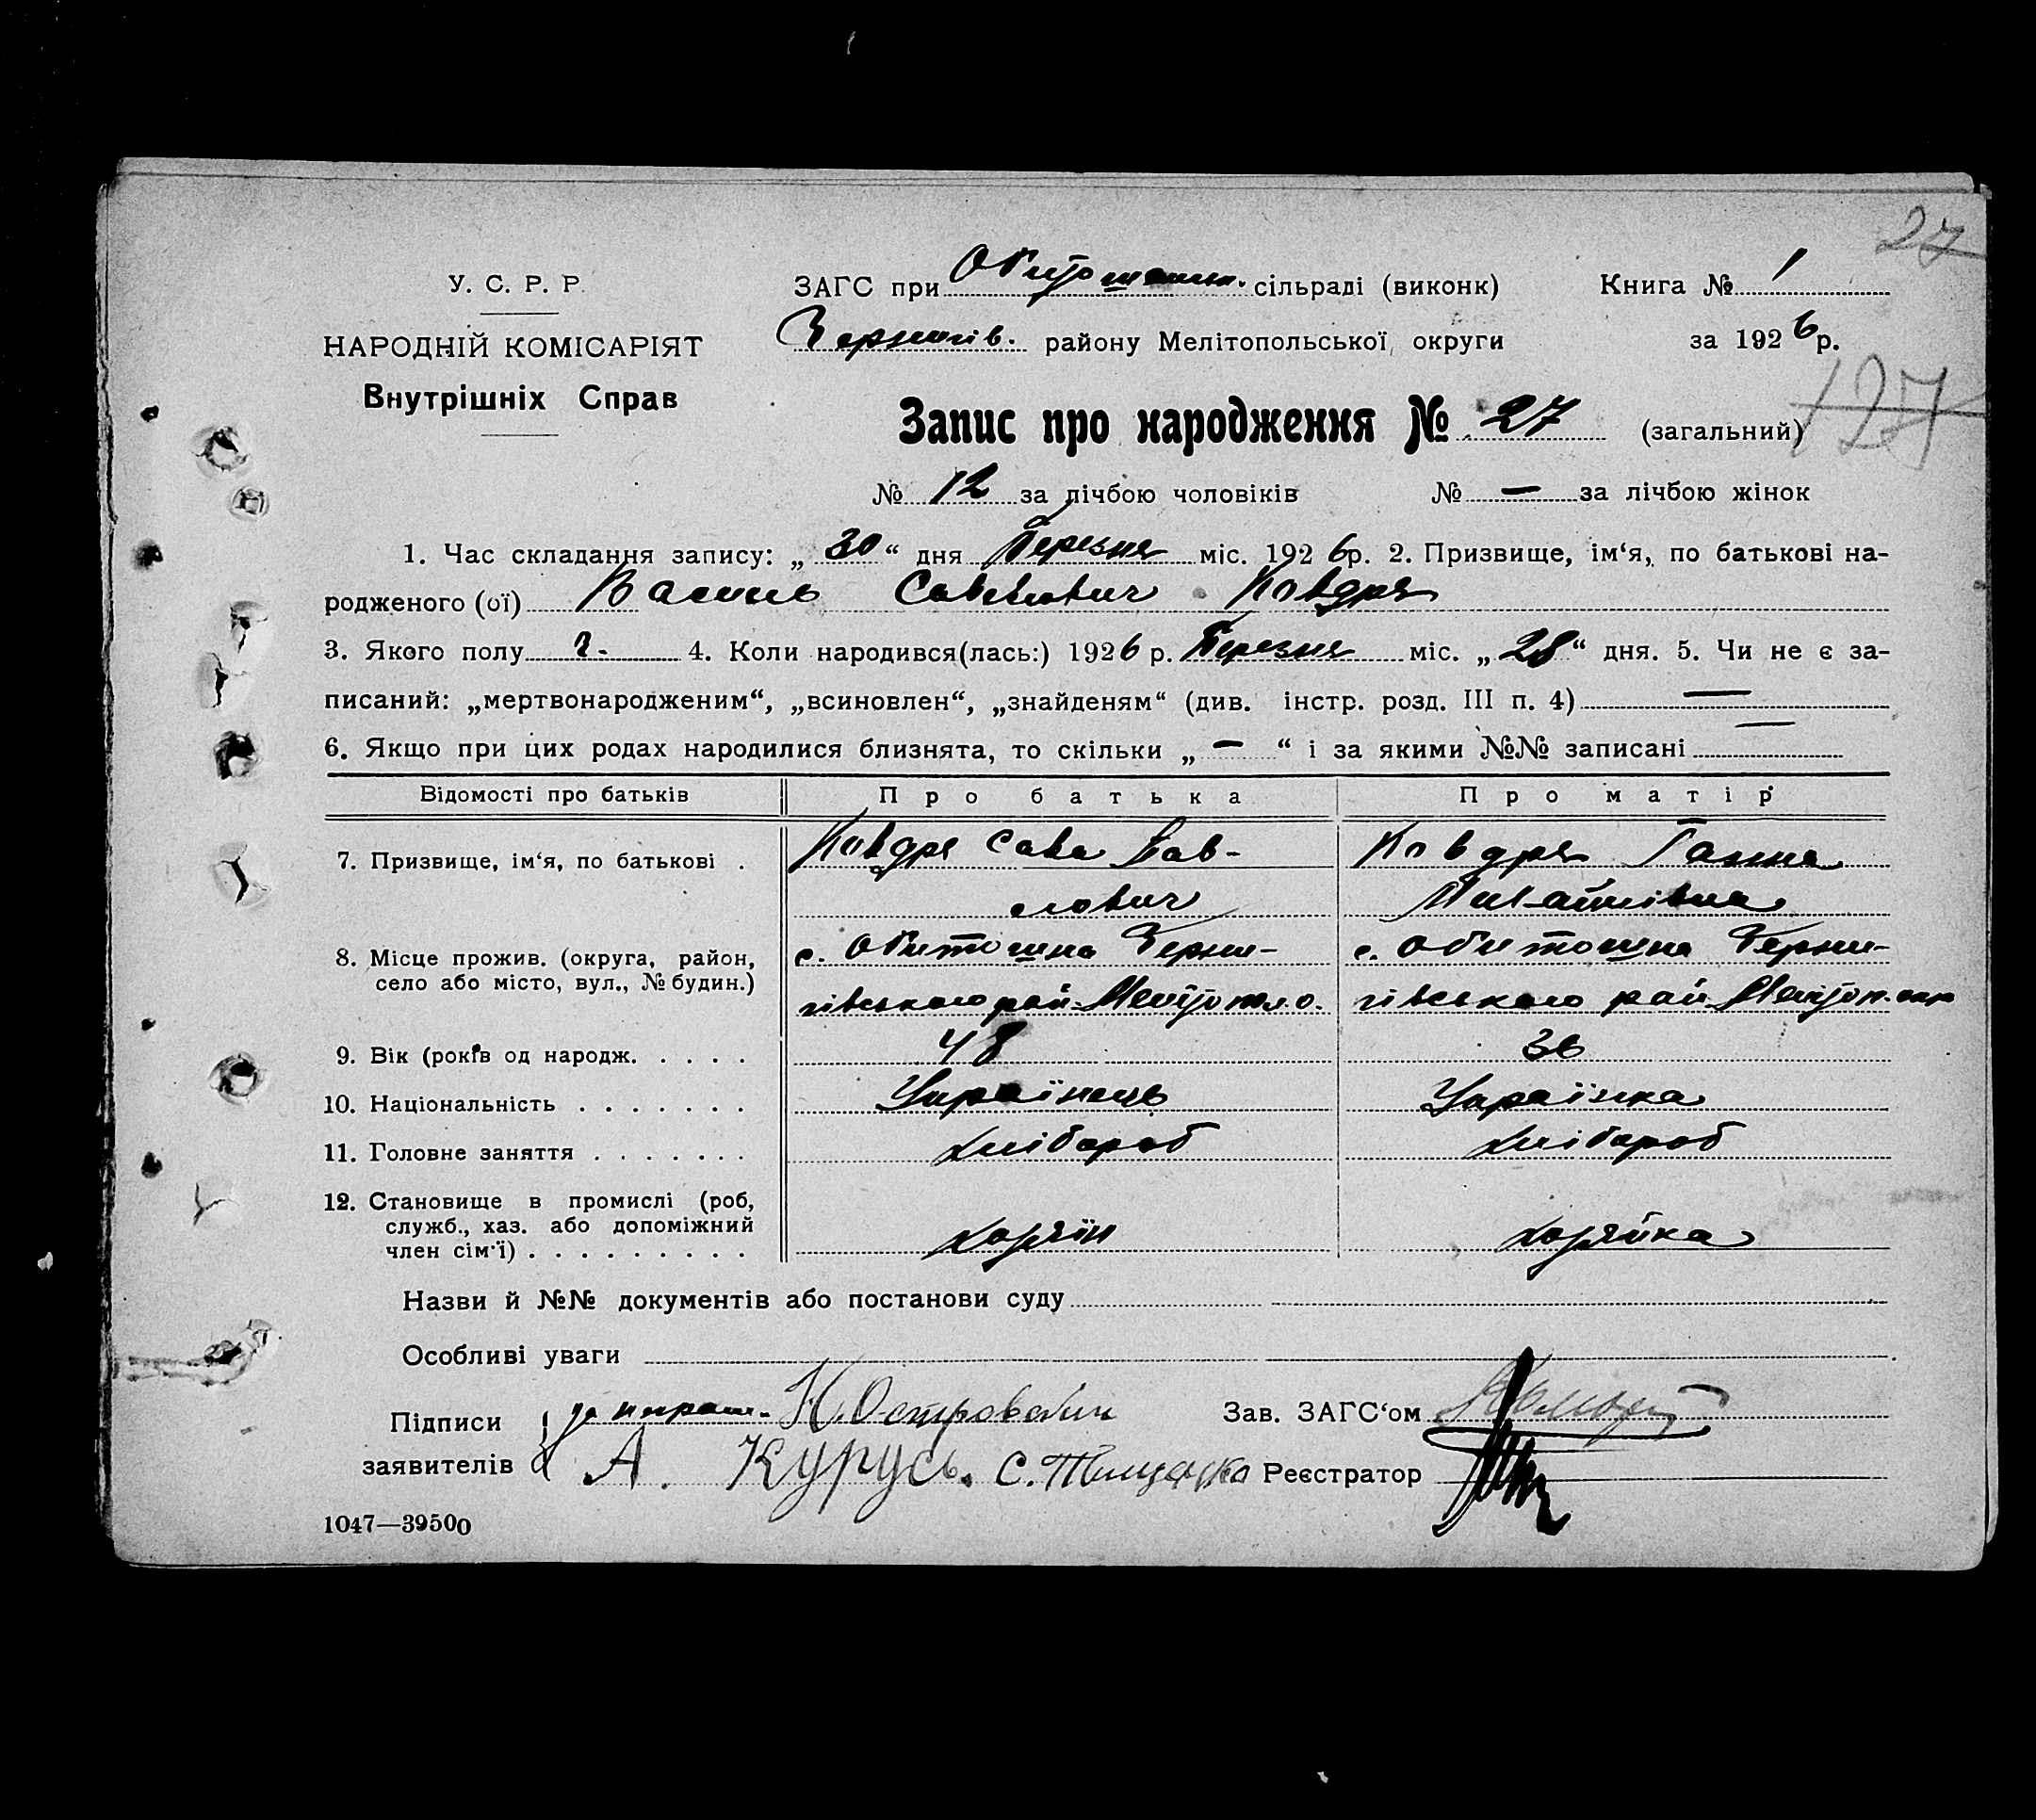 27
У. С. Р. Р.
НАРОДНІЙ КОМІСАРІЯТ
Внутрішніх Справ
ЗАГС при Обитошанн. сільраді (виконк)
Книга № 1
Черниг\u0456в. району Мелітопольської округи
за 1926 р.
Запис про народження № 27 (загальний)
127
№ 12 за лічбою чоловіків № — за лічбою жінок
1. Час складання запису: „ 30 “ дня Березня міс. 1926 р. 2. Призвище, ім‘я, по батькові на-
родженого (ої) Василь Савелович Ковдря
3. Якого полу ч. 4. Коли народився(лась:) 1926 р. Березня міс. „ 28 “ дня. 5. Чи не є за-
писаний: „мертвонародженим“, „всиновлен“, „знайденям“ (див. інстр. розд. III п. 4) —
6. Якщо при цих родах народилися близнята, то скільки „ — “ і за якими №№ записані —
Відомості про батьків Про батька Про матір
7. Призвище, ім‘я, по батькові . Ковдря Сава Пав- Ковдря Ганна
лович Михайлівна
8. Місце прожив. (округа, район, с. Обиточна Черни- с. Обиточна Черни-
село або місто, вул., № будин.) гівського рай. Мелітопол. о. гівського рай. Мелітоп. окр
9. Вік (років од народж. . . . . 48 36
10. Національність . . . . . . . Українець Українка
11. Головне заняття . . . . . . . хлібороб хлібороб
12. Становище в промислі (роб,
служб., хаз. або допоміжний
член сім‘ї) . . . . . . . . . хозяїн хозяйка
Назви й №№ документів або постанови суду
Особливі уваги
Підписи Н. Островський Зав. ЗАГС‘ом
заявителів А. Курусь. С. Тимченко Реєстратор
1047—39500